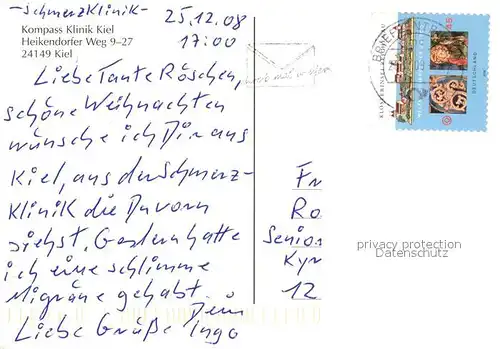 -Schmerzklinik-
25.12.08
17:00
Kompass Klinik Kiel
Heikendorfer Weg 9–27
24149 Kiel
Liebe Tante Röschen,
schöne Weihnachten
wünsche ich Dir aus
Kiel, aus der Schmerz-
klinik die Du vorn
siehst. Gestern hatte
ich eine schlimme
Migräne gehabt.
Dein
Liebe Grüße Ingo
Fr
Ro
Senior
Kyr
12
privacy protection
Datenschutz
DEUTSCHLAND